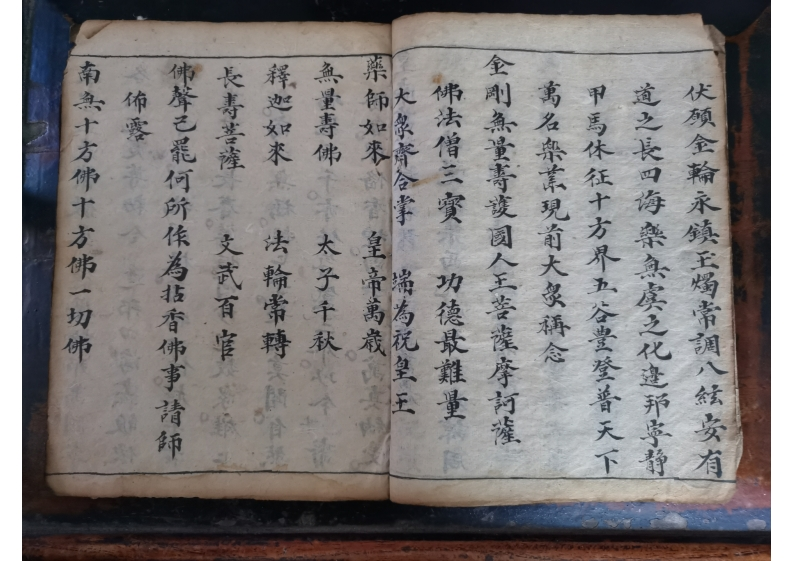 伏願金輪永鎮玉燭常調八紘安有
道之長四海樂無虞之化邊邦寧靜
甲馬休征十方界五谷豊登普天下
萬名樂業現前大眾稱念
金剛無量壽護國人王菩薩摩訶薩
佛法僧三寶 功德最難量
大眾齊合掌 端為祝皇王
藥師如來 皇帝萬歲
無量壽佛 太子千秋
釋迦如來 法輪常轉
長壽菩薩 文武百官
佛聲已罷何所作為拈香佛事請師
佈露
南無十方佛十方佛一切佛